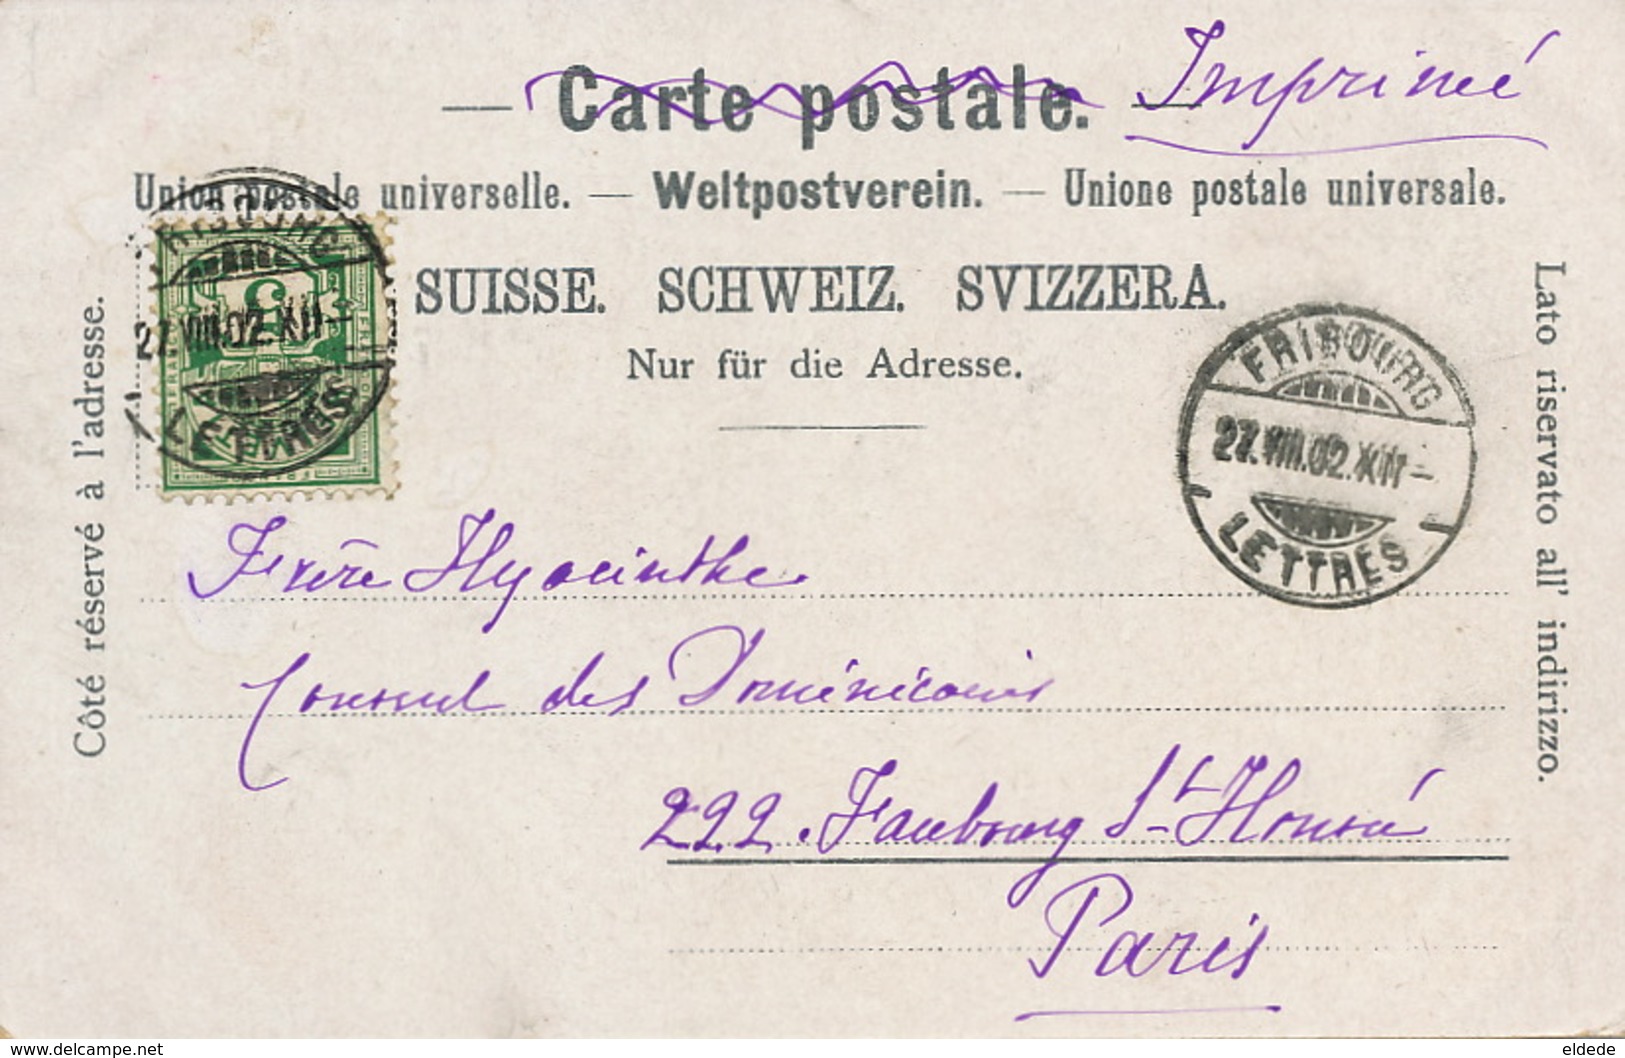 — Carte postale. — Imprimé
Union postale universelle. — Weltpostverein. — Unione postale universale.
SUISSE. SCHWEIZ. SVIZZERA.
Nur für die Adresse.
Côté réservé à l'adresse.
Lato riservato all' indirizzo.
5
FRANCO
HELVETIA
FRIBOURG
27.VIII.02.XII-
LETTRES
FRIBOURG
27.VIII.02.XII-
LETTRES
Frère Hyacinthe
des Dominicains
222. Faubourg St Honoré
Paris
www.delcampe.net
eldede